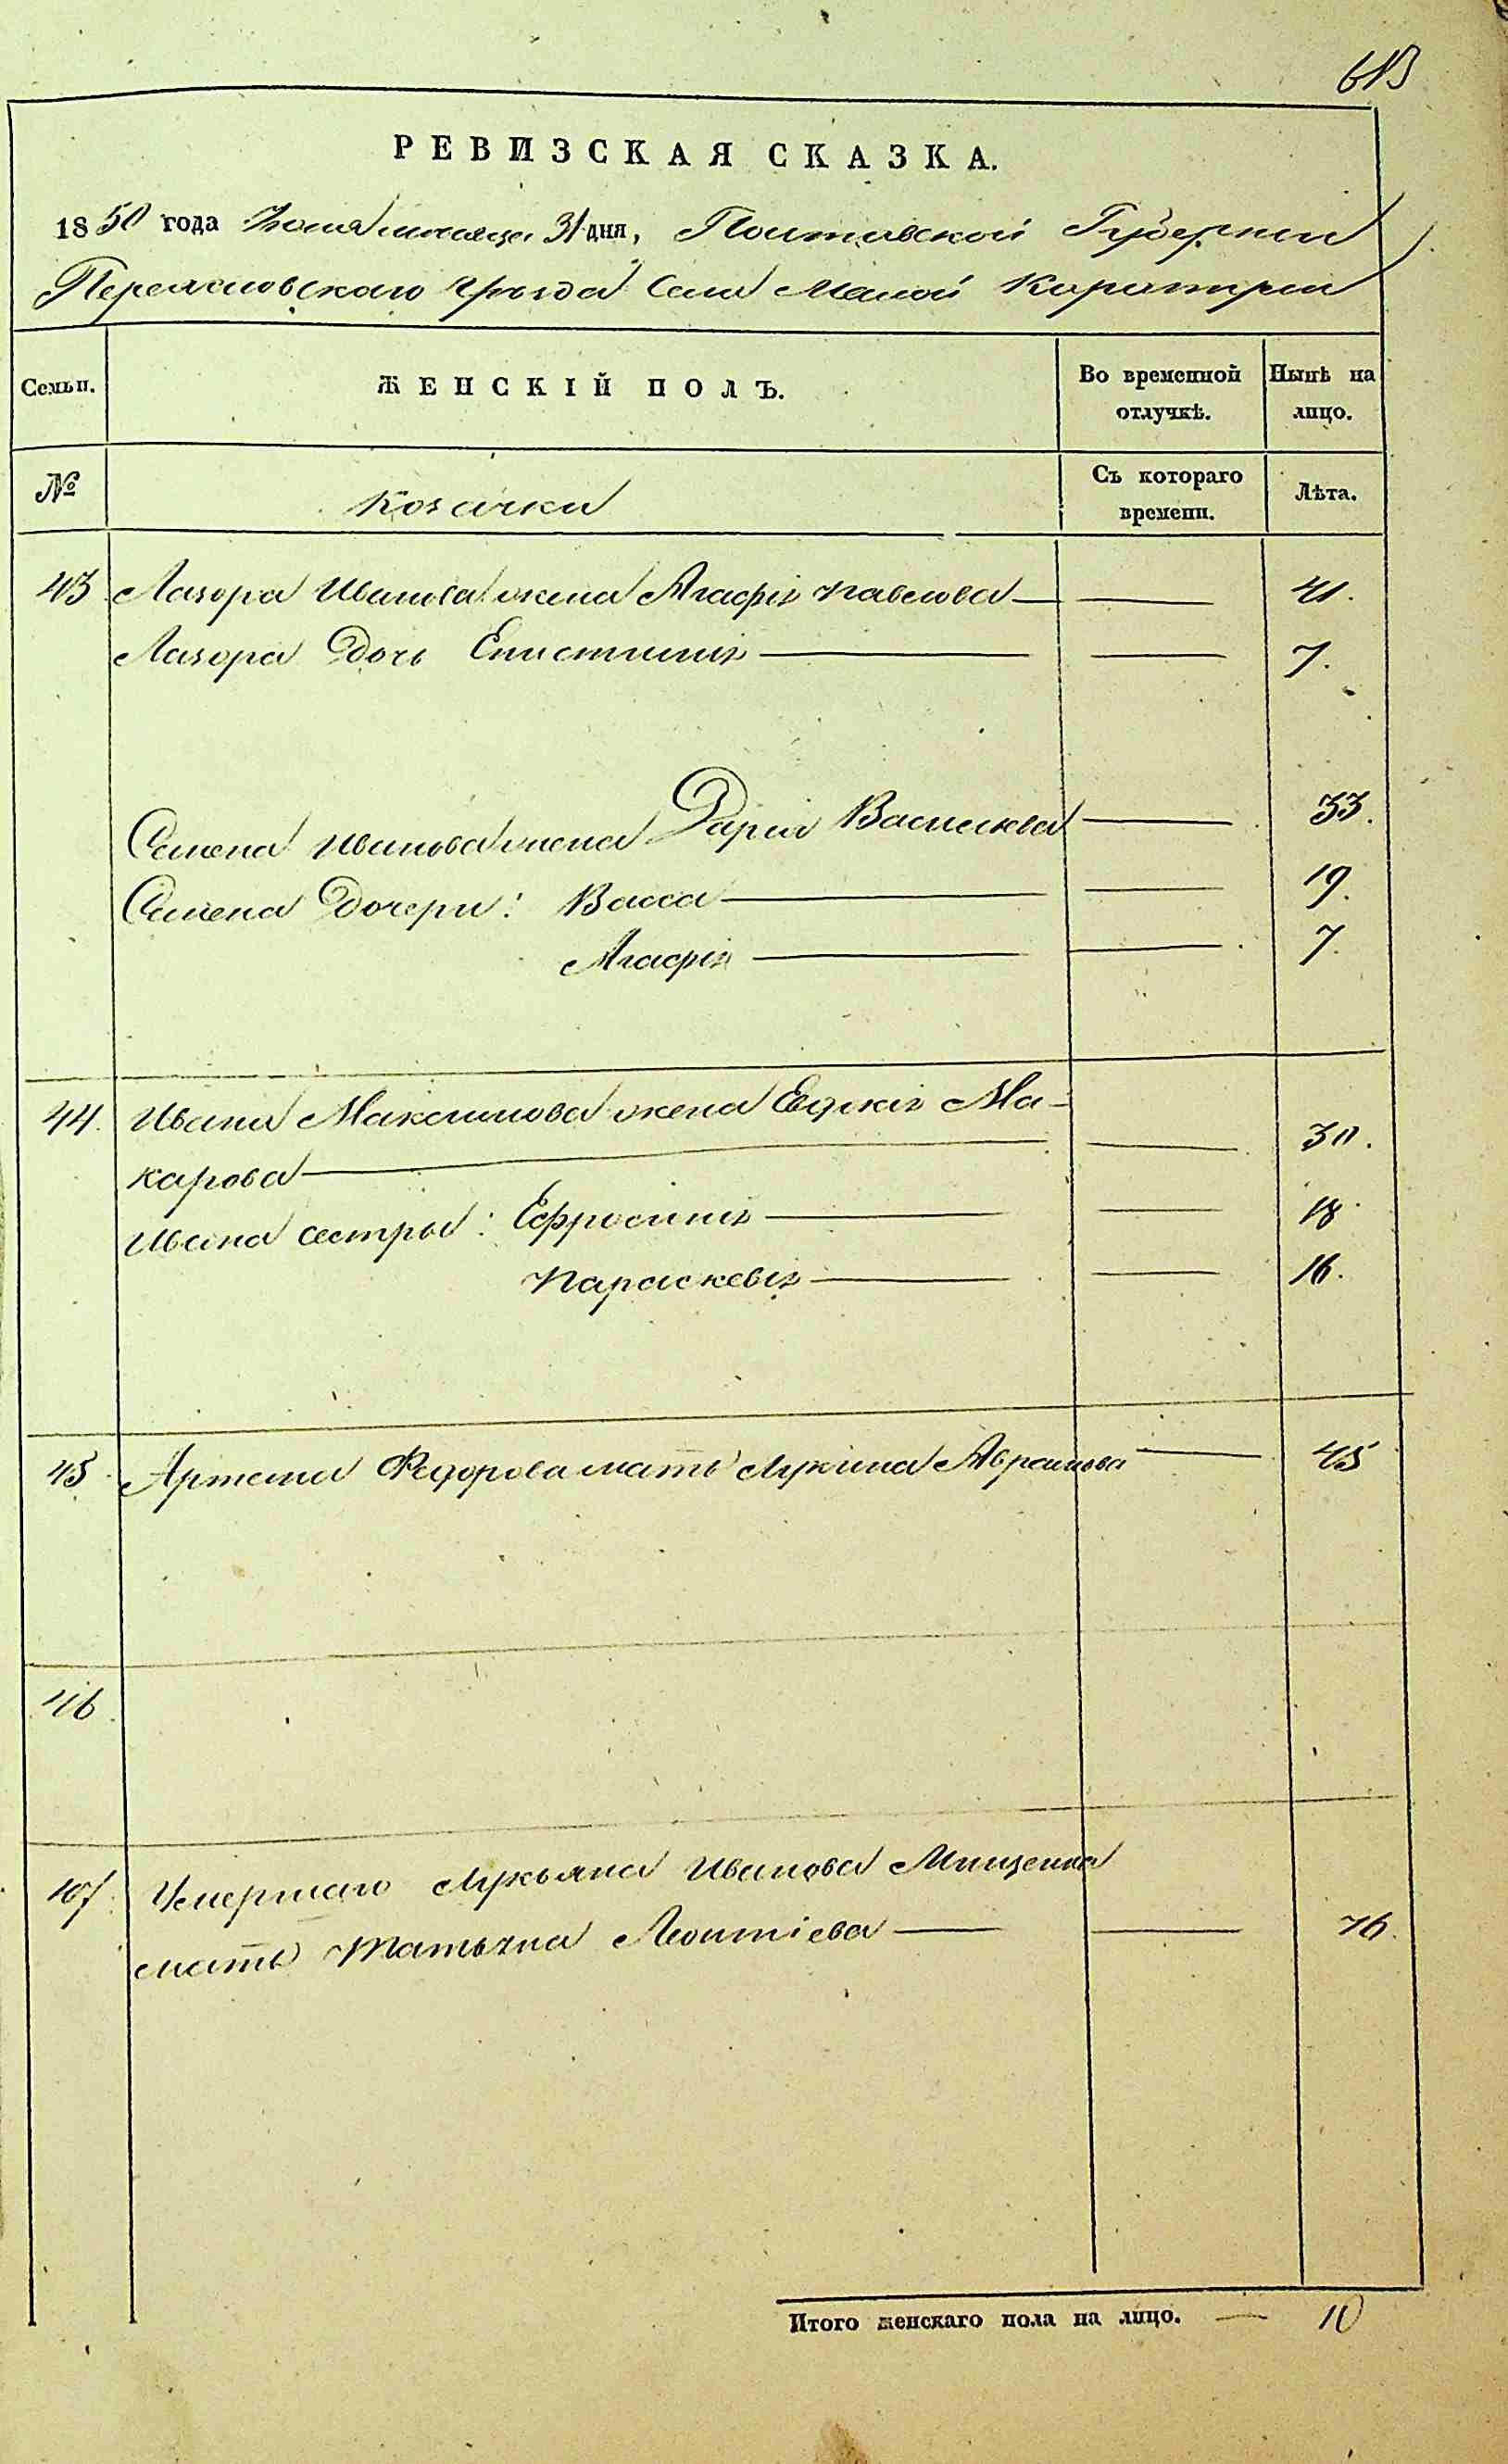 613
РЕВИЗСКАЯ СКАЗКА.
1850 года Іюля месяца 31 дня, Полтавской Губерніи
Переясловскаго Уѣзда Села Малой Каратули
Семьи. ЖЕНСКІЙ ПОЛЪ. Во временной отлучкѣ. Нынѣ на лицо.
№ Козачки Съ котораго времени. Лѣта.
43 Лазора Иванова жена Агафія Павлова — — 41.
Лазора Дочь Епистимія — — 7.
Семена Иванова жена Дарія Васильева — 33.
Семена Дочери: Васса — — 19.
Агафія — — 7.
44. Ивана Максимова жена Евдокія Ма-
карова — — 30.
Ивана сестры: Ефросинія — — 18.
Параскевія — — 16.
45 Артема Федорова мать Лукіна Аврамова — 45
46
47. Умершаго Лукьяна Иванова Мищенка
мать Татьяна Леонтіева — — 76.
Итого женскаго пола на лицо. — 10